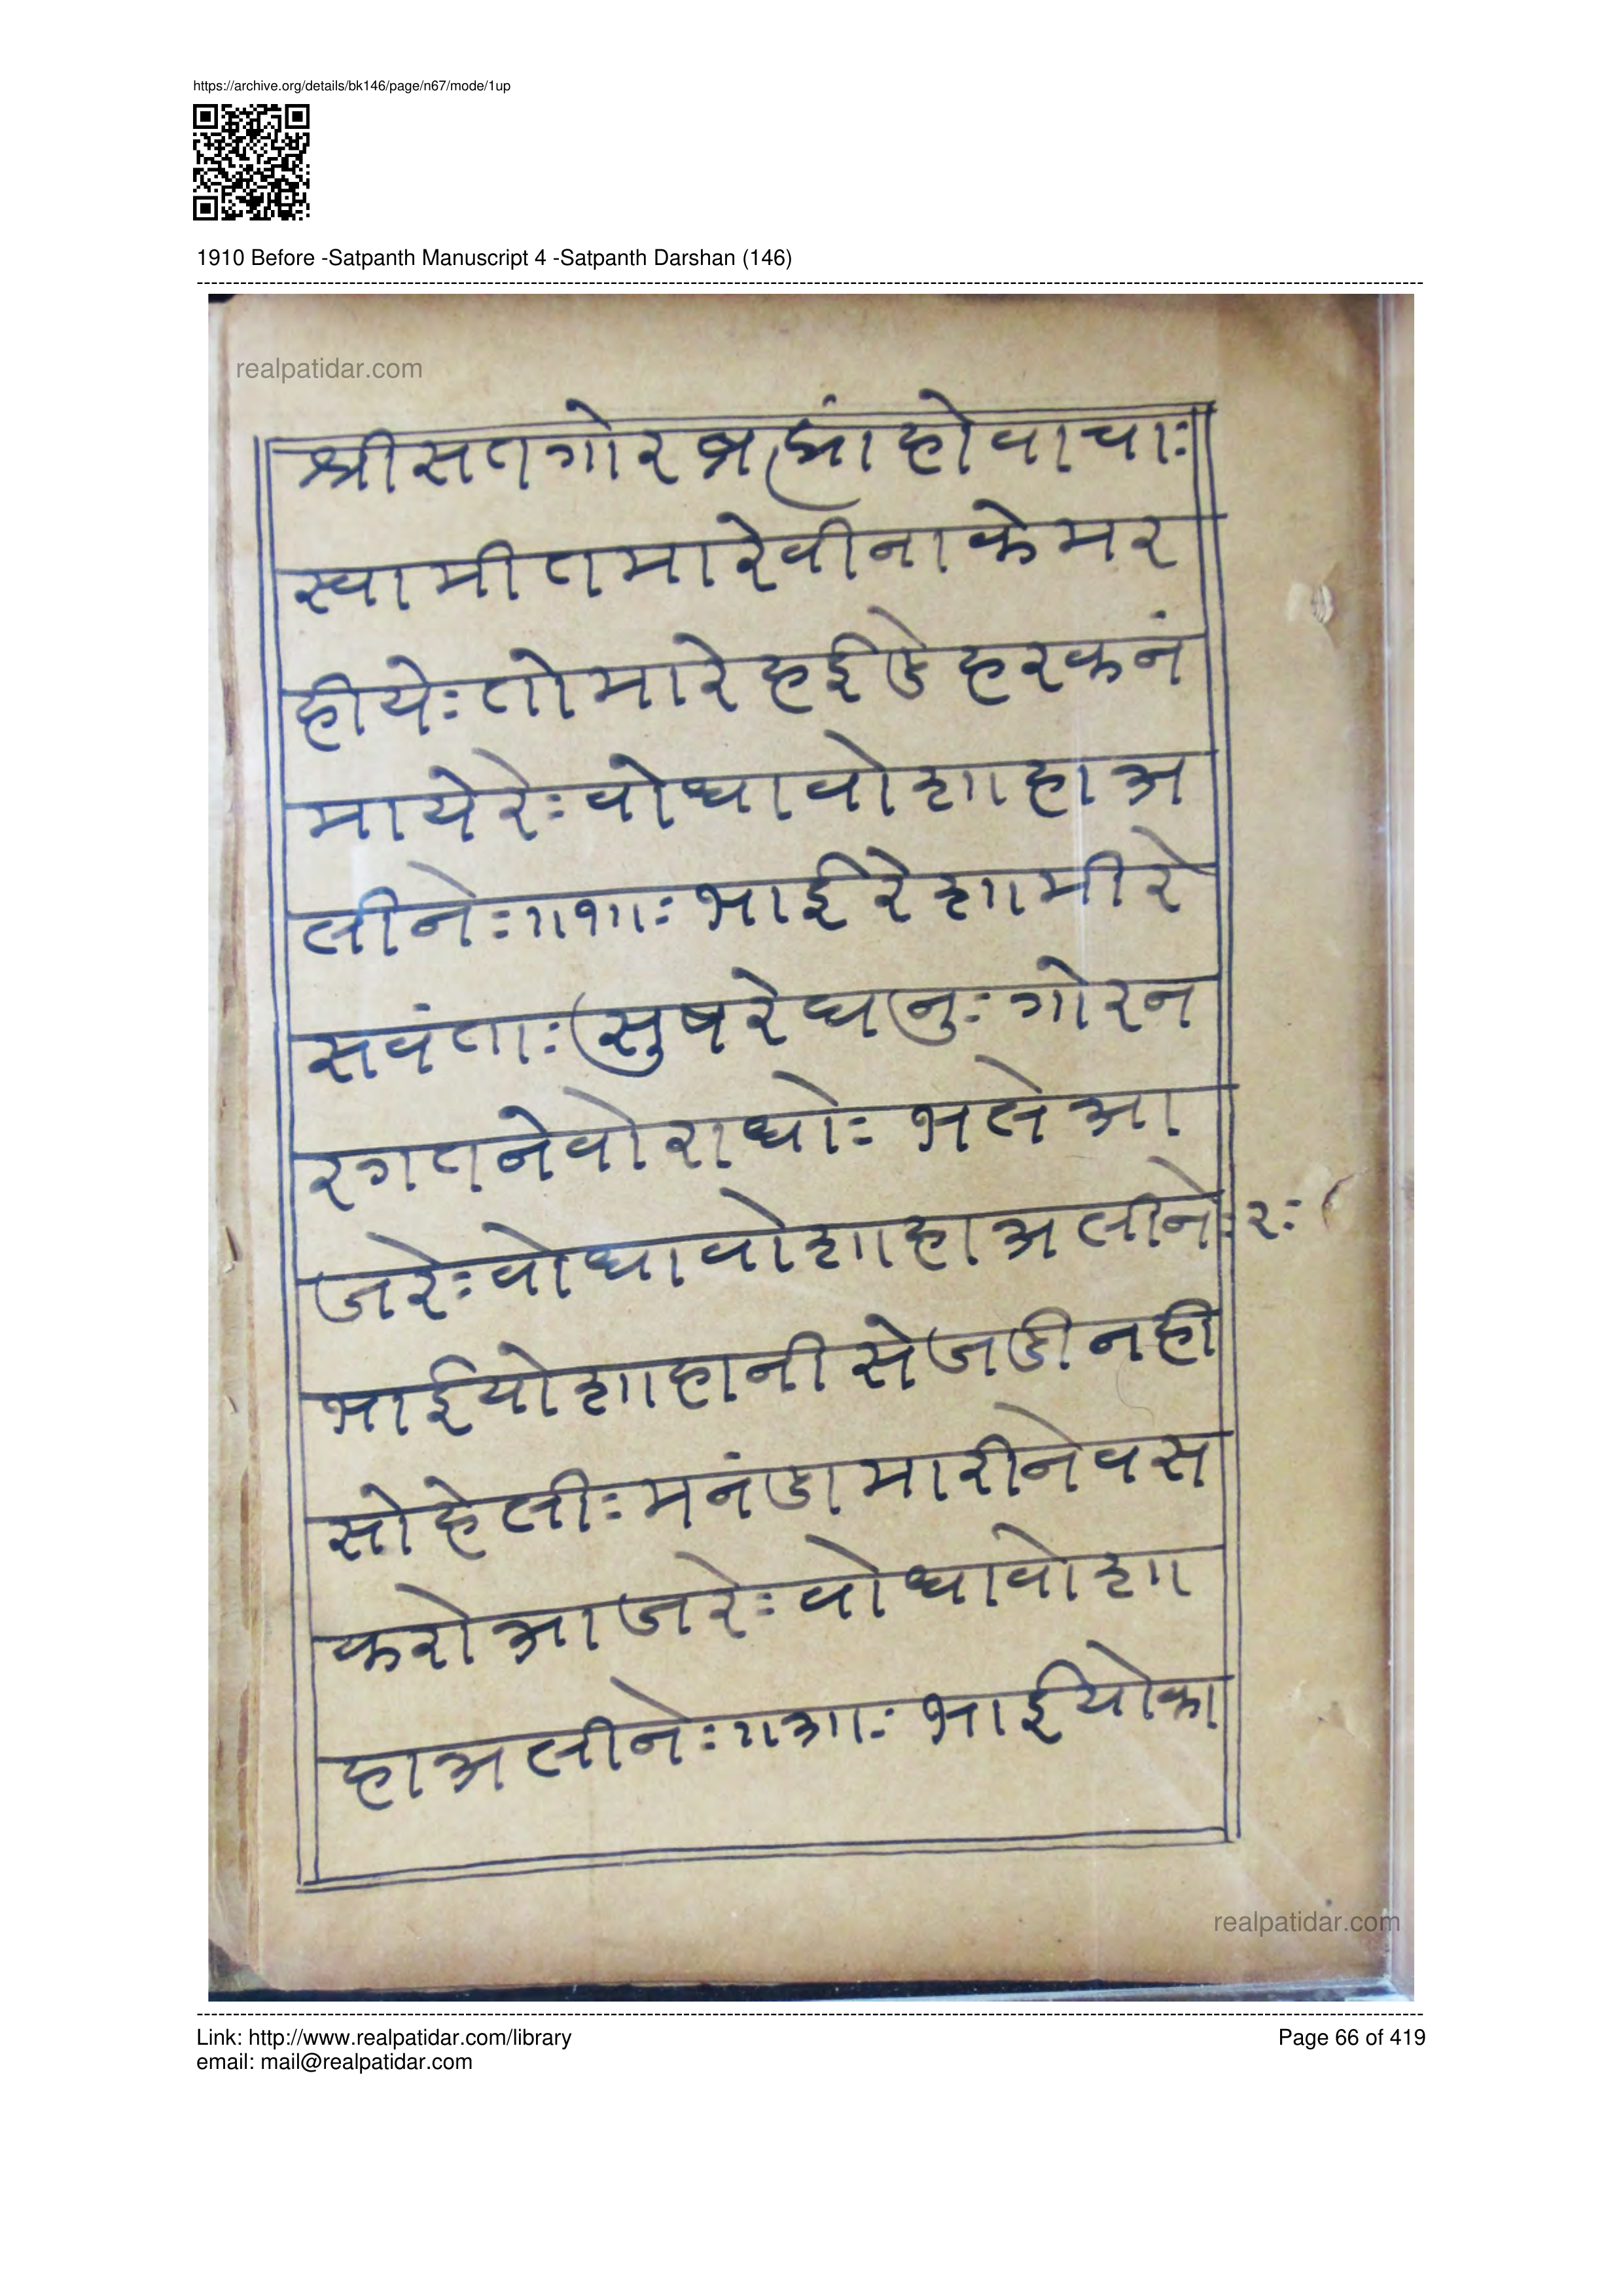 https://archive.org/details/bk146/page/n67/mode/1up
1910 Before -Satpanth Manuscript 4 -Satpanth Darshan (146)
realpatidar.com
श्रीसतगोरब्रह्मांहोवाचाः
स्वामीतमारेवीनाकेमर
हीयेः तोमारेहईडेहरकनं
मायेरेः वोधावोशाहाअ
लीनेः ॥१॥ः भाईरेशामीरे
सवंताः सुषरेघनुः गोरन
रगतनेवोराधोः भलेआ
जरेः वोधावोशाहाअलीनेः २ः
भाईयोशाहानीसेजडीनही
सोहेलीः मनंडामारीनेवस
करोआजरेः वोधावोशा
हाअलीनेः ॥३॥ः भाईयोका
realpatidar.com
Link: http://www.realpatidar.com/library
Page 66 of 419
email: mail@realpatidar.com